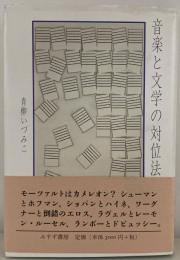 音楽と文学の対位法
青柳いづみこ
モーツァルトはカメレオン? シューマン
とホフマン、ショパンとハイネ、ワーグ
ナーと倒錯のエロス、ラヴェルとレーモ
ン・ルーセル、ランボーとドビュッシー。
みすず書房 定価(本体3000円+税)